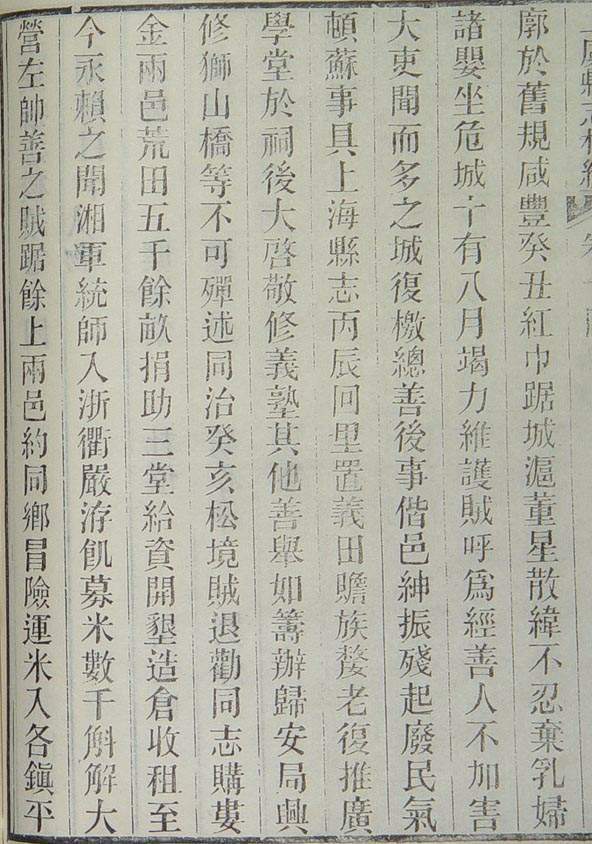 上虞縣志校續
廓於舊規咸豐癸丑紅巾踞城滬董星散緯不忍棄乳婦
諸嬰坐危城十有八月竭力維護賊呼爲經善人不加害
大吏聞而多之城復檄總善後事偕邑紳振殘起廢民氣
頓蘇事具上海縣志丙辰回里置義田贍族嫠老復推廣
學堂於祠後大啓敬修義塾其他善舉如籌辦歸安局興
修獅山橋等不可殫述同治癸亥松境賊退勸同志購婁
金兩邑荒田五千餘畝捐助三堂給資開墾造倉收租至
今永賴之聞湘軍統師入浙衢嚴洊飢募米數千斛解大
營左帥善之賊踞餘上兩邑約同鄉冒險運米入各鎮平